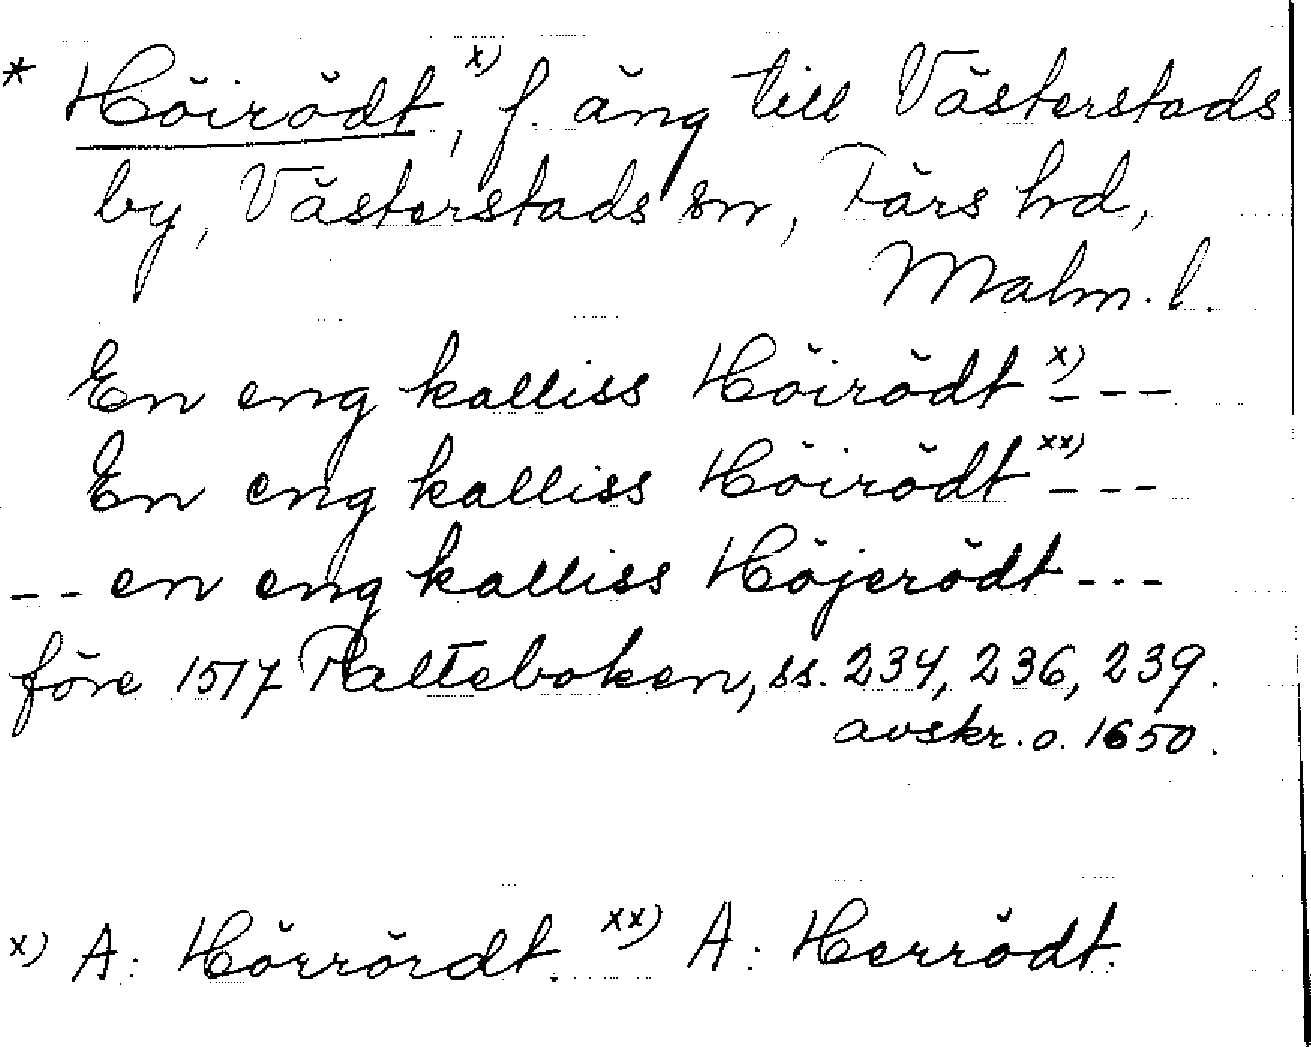 * Höirödt,x) f. äng till Västerstads
by, Västerstads sn, Färs hd,
Malm. l.
En eng kalliss Höirödt x) ---
En eng kalliss Höirödt xx) ---
-- en eng kalliss Höjerödt ---
före 1517 Palteboken, ss. 234, 236, 239.
avskr. o. 1650.
x) A: Hörrördt. xx) A: Herrödt.